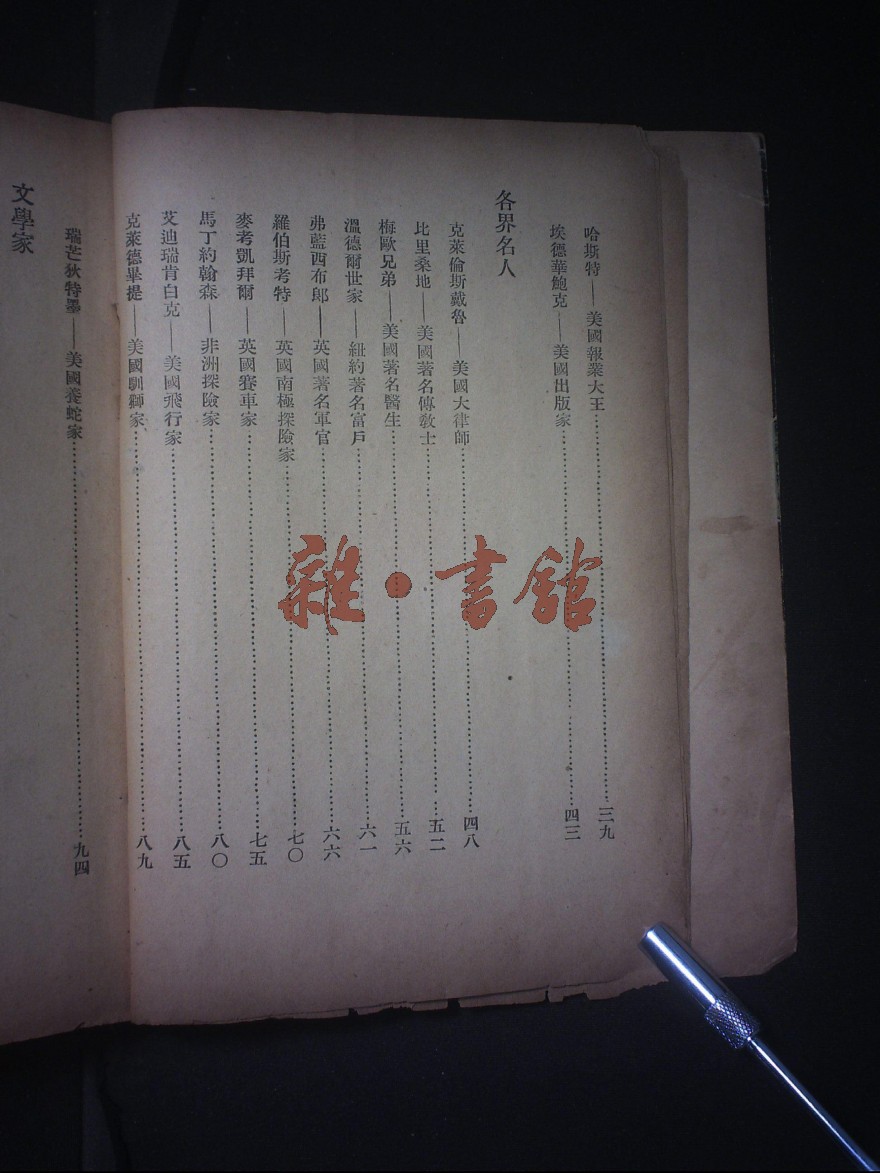 哈斯特——美國報業大王……三九
埃德華鮑克——美國出版家……四三
各界名人
克萊倫斯戴魯——美國大律師……四八
比里桑地——美國著名傳敎士……五二
梅歐兄弟——美國著名醫生……五六
溫德爾世家——紐約著名富戶……六一
弗藍西布郞——英國著名軍官……六六
羅伯斯考特——英國南極探險家……七〇
麥考凱拜爾——英國賽車家……七五
馬丁約翰森——非洲探險家……八〇
艾迪瑞肯白克——美國飛行家……八五
克萊德畢提——美國馴獅家……八九
瑞芒狄特墨——美國養蛇家……九四
文學家
雜·書館